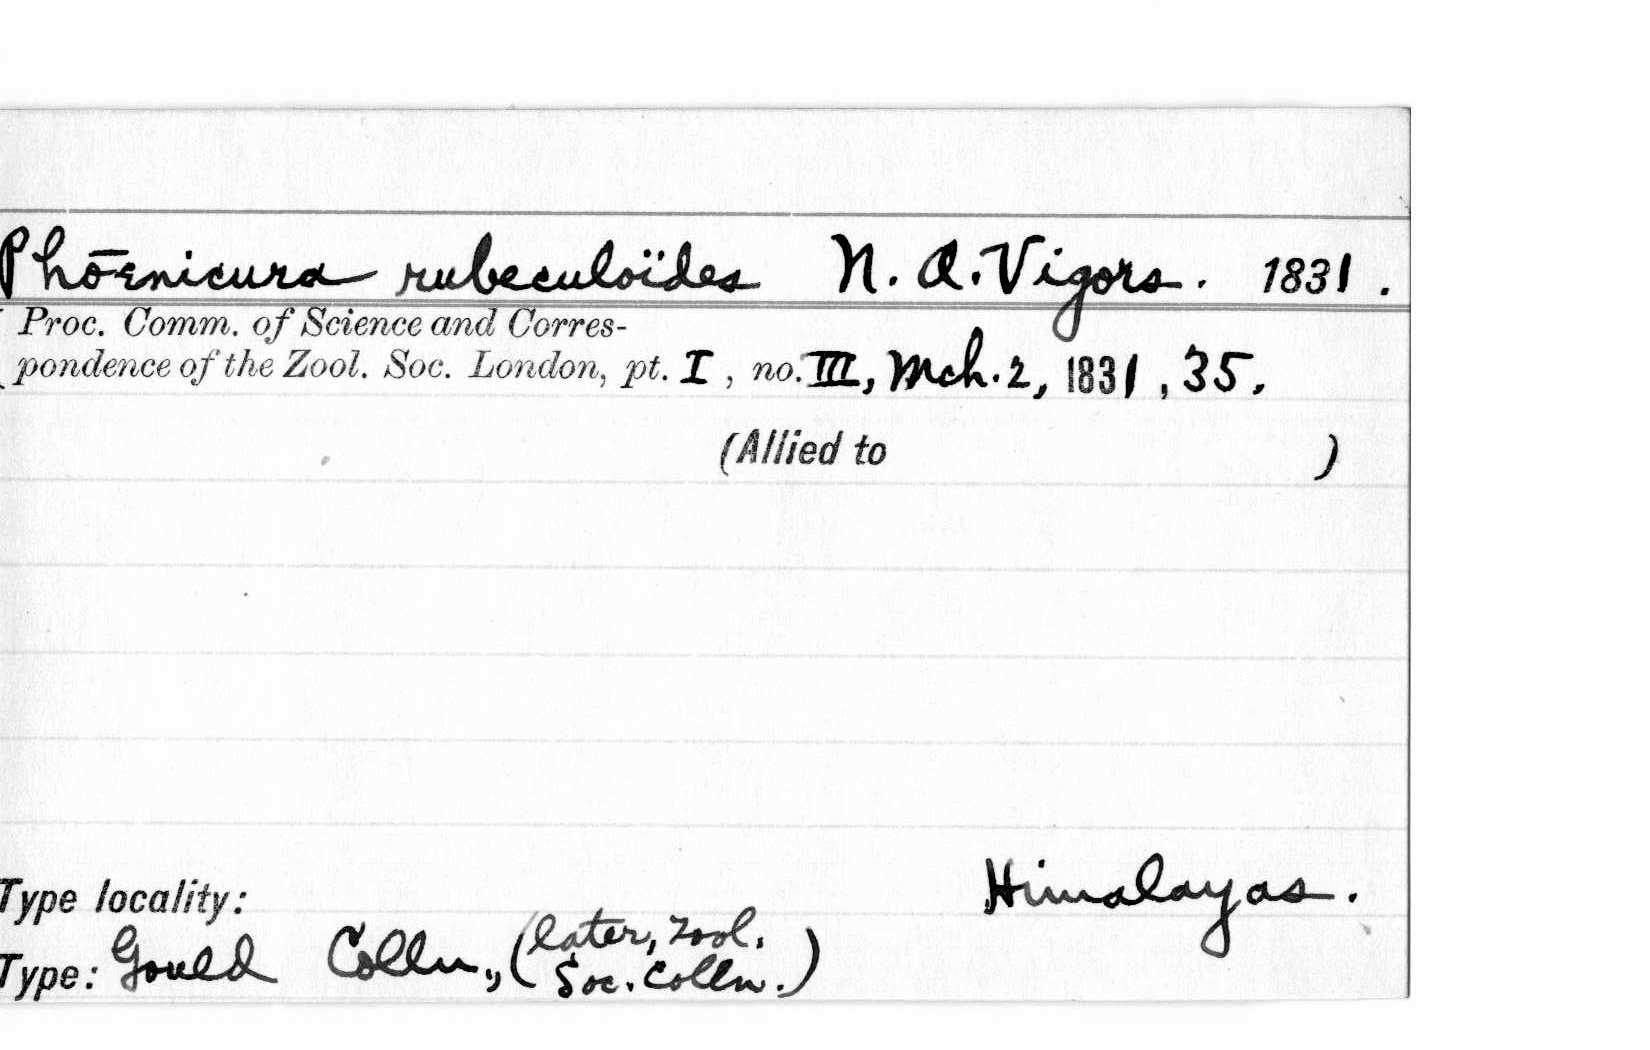 Phoenicura rubeculoïdes N. A. Vigors. 1831.
Proc. Comm. of Science and Corres-
pondence of the Zool. Soc. London, pt. I, no. III, Mch. 2, 1831, 35.
(Allied to )
Himalayas.
Type locality:
Type: Gould Colln., (later, Zool. Soc. Colln.)